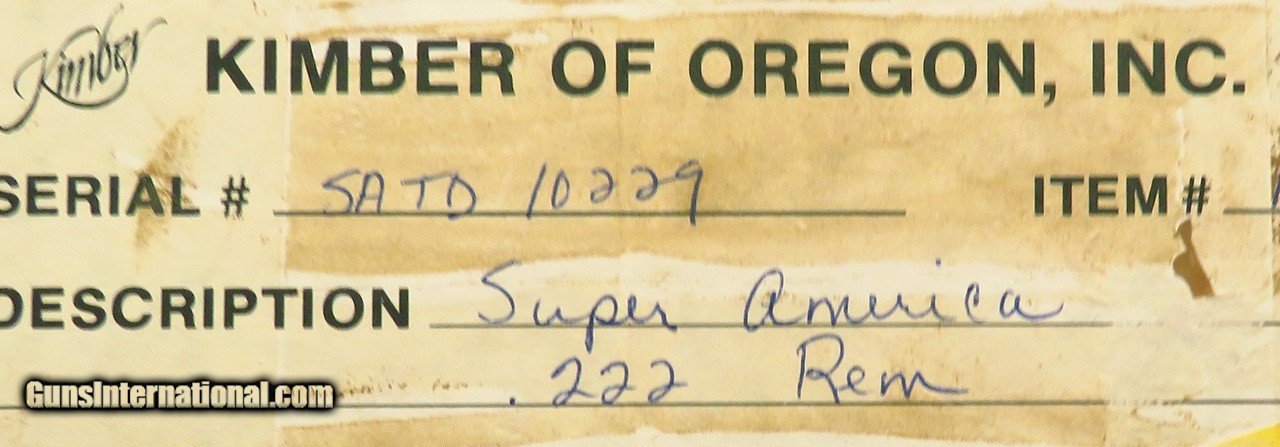 Kimber KIMBER OF OREGON, INC.
SERIAL # SATD 10229 ITEM #
DESCRIPTION Super America
.222 Rem
GunsInternational.com